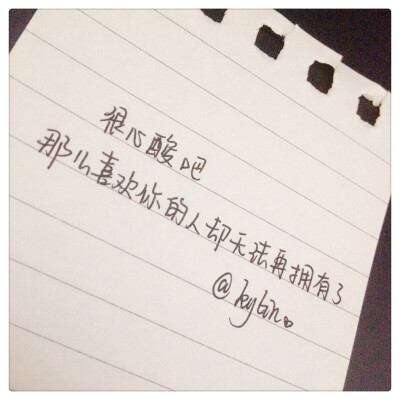 很心酸吧
那么喜欢你的人却无法再拥有了